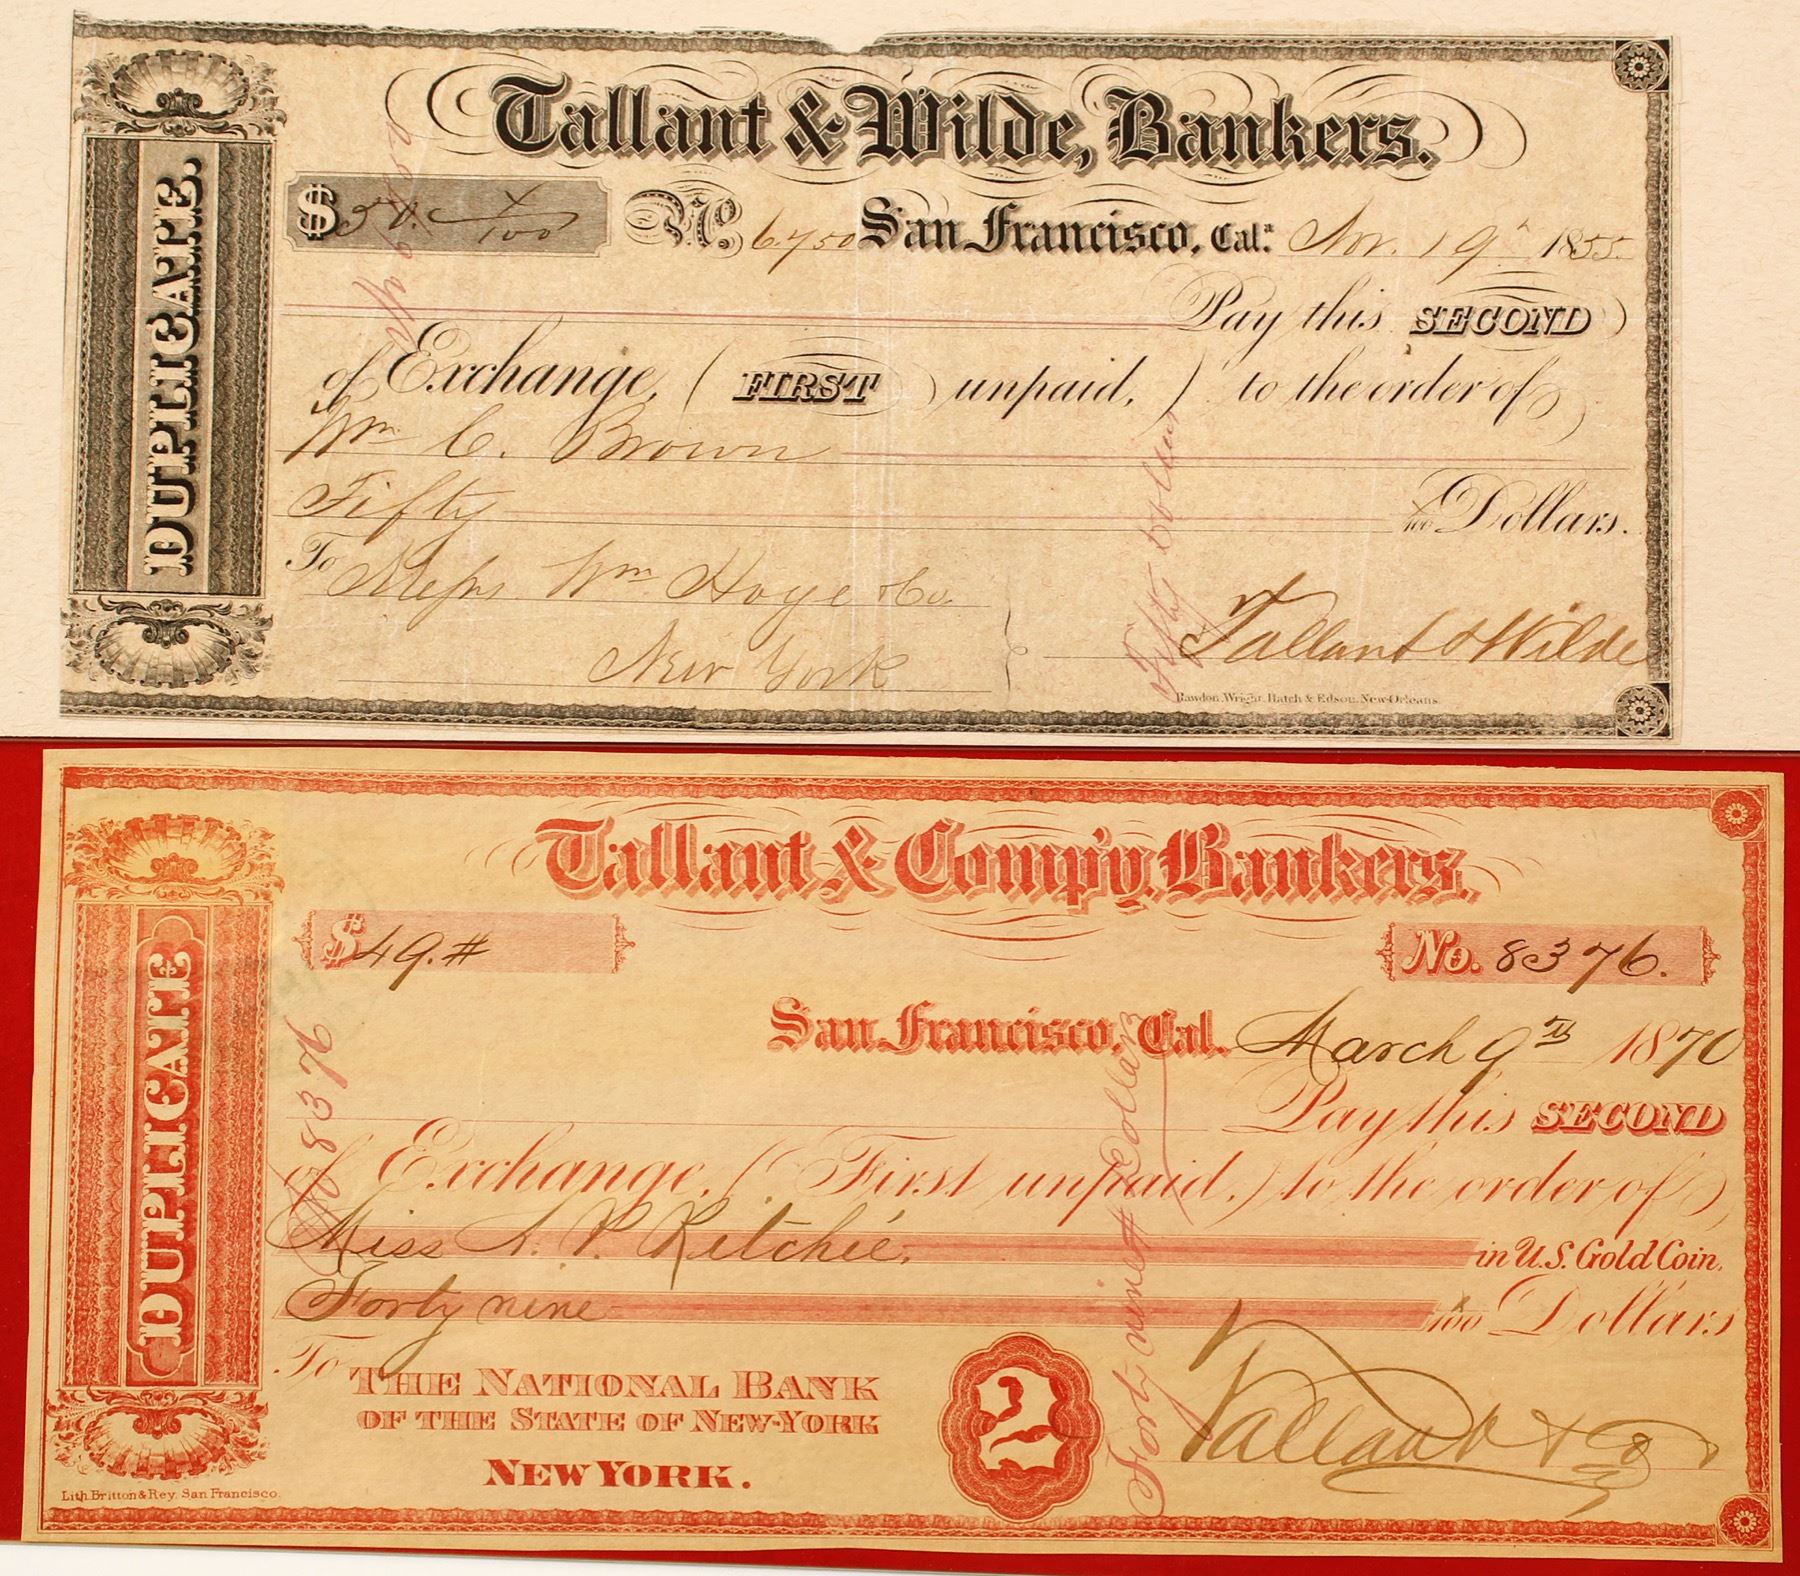 Tallant & Wilde, Bankers.
DUPLICATE.
$ 50. x/100 No. 6750 San Francisco, Cal.ª Nov. 19th 1855.
Pay this SECOND
of Exchange, (FIRST unpaid,) to the order of
Wm C. Brown
Fifty x/100 Dollars.
To Messrs Wm Hoge & Co.
New York
Tallant & Wilde
Fifty Dollars
Rawdon, Wright, Hatch & Edson, New-Orleans.
Tallant & Comp'y. Bankers.
DUPLICATE
$ 49.# No. 8376.
San Francisco, Cal. March 9th 1870
Pay this SECOND
of Exchange, (First unpaid,) to the order of
Miss A. P. Ritchie, in U.S. Gold Coin,
Forty nine x/100 Dollars
To THE NATIONAL BANK
OF THE STATE OF NEW-YORK
NEW YORK.
2
Tallant & Co
No 8376
Forty nine # Dollars
Lith. Britton & Rey, San Francisco.